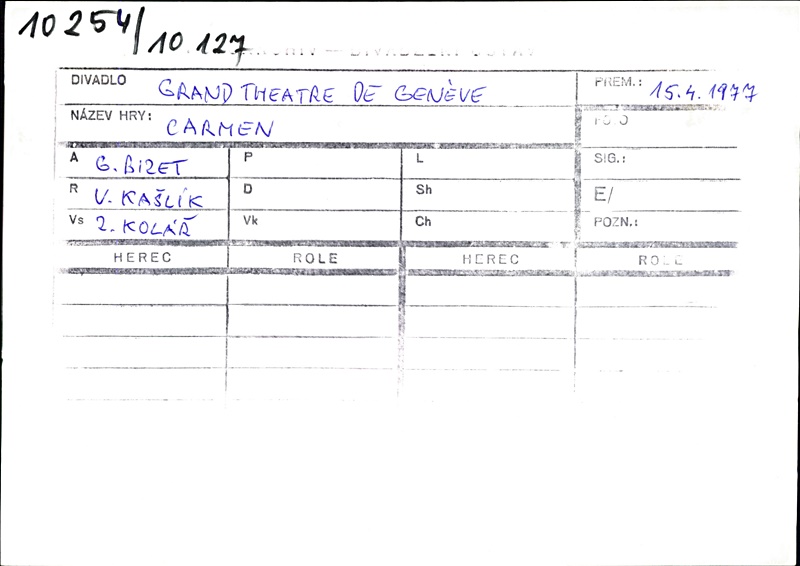 10 254/
10 127
DIVADLO GRAND THEATRE DE GENÈVE PREM.: 15.4.1977
NÁZEV HRY: CARMEN
A G. BIZET P L SIG.:
R V. KAŠLÍK D Sh E/
Vs Z. KOLÁŘ Vk Ch POZN.:
HEREC ROLE HEREC ROLE